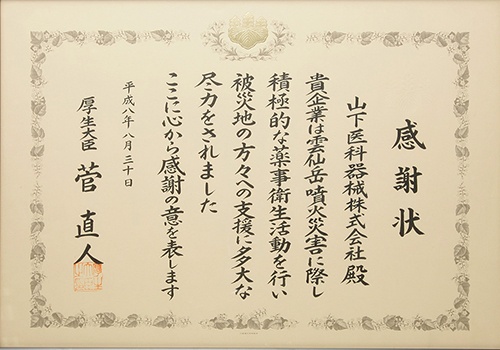 感謝状
山下医科器械株式会社殿
貴企業は雲仙岳噴火災害に際し
積極的な薬事衛生活動を行い
被災地の方々への支援に多大な
尽力をされました
ここに心から感謝の意を表します
平成八年八月三十日
厚生大臣 菅直人